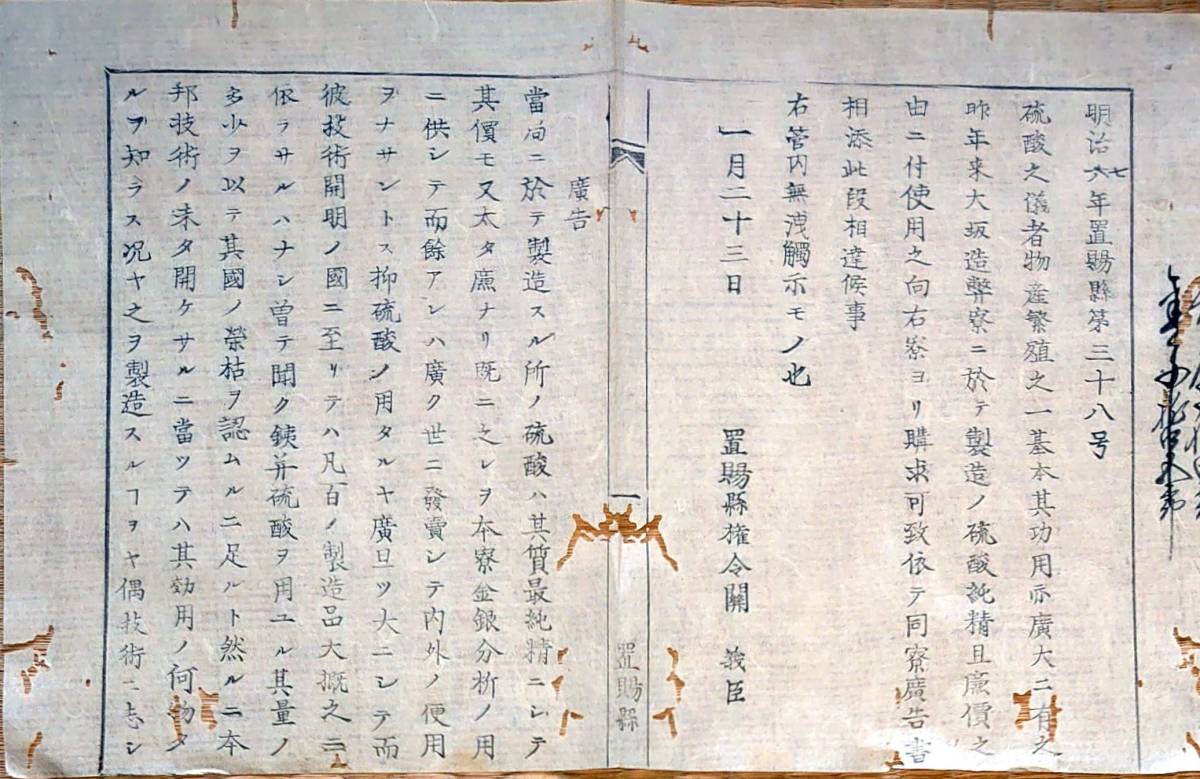 明治七年置賜縣第三十八号
硫酸之儀者物産繁殖之一基本其功用亦廣大ニ有之
昨年来大坂造弊寮ニ於テ製造ノ硫酸純精且廉價之
由ニ付使用之向右寮ヨリ購求可致依テ同寮廣告書
相添此段相達候事
右管内無洩觸示モノ也
一月二十三日 置賜縣権令關 義臣
一 置賜縣
廣告
當局ニ於テ製造スル所ノ硫酸ハ其質最純精ニシテ
其價モ又太タ廉ナリ既ニ之レヲ本寮金銀分析ノ用
ニ供シテ而餘アレハ廣ク世ニ發賣シテ内外ノ便用
ヲナサントス抑硫酸ノ用タルヤ廣且ツ大ニシテ而
彼技術開明ノ國ニ至リテハ凡百ノ製造品大概之ニ
依ラサルハナシ曽テ聞ク鉄并硫酸ヲ用ユル其量ノ
多少ヲ以テ其國ノ榮枯ヲ認ムルニ足ルト然ルニ本
邦技術ノ未タ開ケサルニ當ツテハ其効用ノ何物タ
ルヲ知ラス况ヤ之ヲ製造スルヿヲヤ偶技術ニ志シ